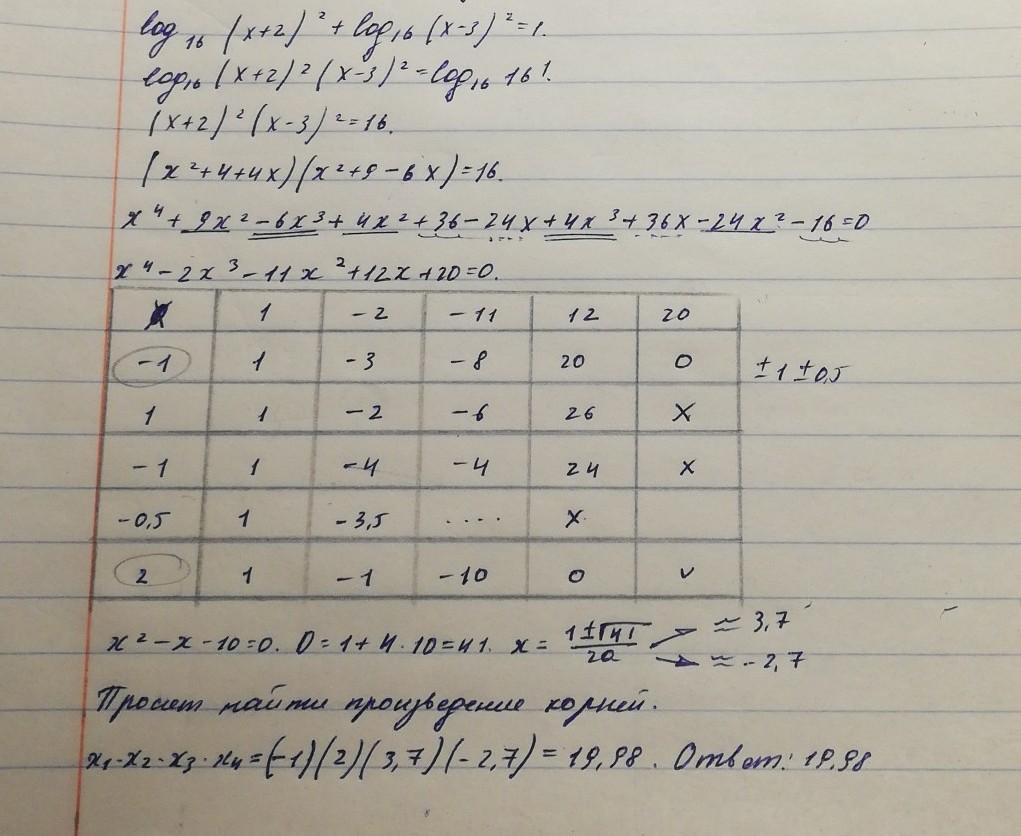 log₁₆ (x+2)² + log₁₆ (x-3)² = 1.
log₁₆ (x+2)² (x-3)² = log₁₆ 16¹.
(x+2)² (x-3)² = 16.
(x²+4+4x)(x²+9-6x)=16.
x⁴ + 9x² - 6x³ + 4x² + 36 - 24x + 4x³ + 36x - 24x² - 16 = 0
x⁴ - 2x³ - 11x² + 12x + 20 = 0.
1 -2 -11 12 20
-1 1 -3 -8 20 0 ±1 ±0,5
1 1 -2 -6 26 X
-1 1 -4 -4 24 x
-0,5 1 -3,5 .... X
2 1 -1 -10 0 v
x² - x - 10 = 0. D = 1 + 4·10 = 41. x = (1±√41)/2a ≈ 3,7 ≈ -2,7
Просят найти произведение корней.
x₁·x₂·x₃·x₄ = (-1)(2)(3,7)(-2,7) = 19,98. Ответ: 19,98